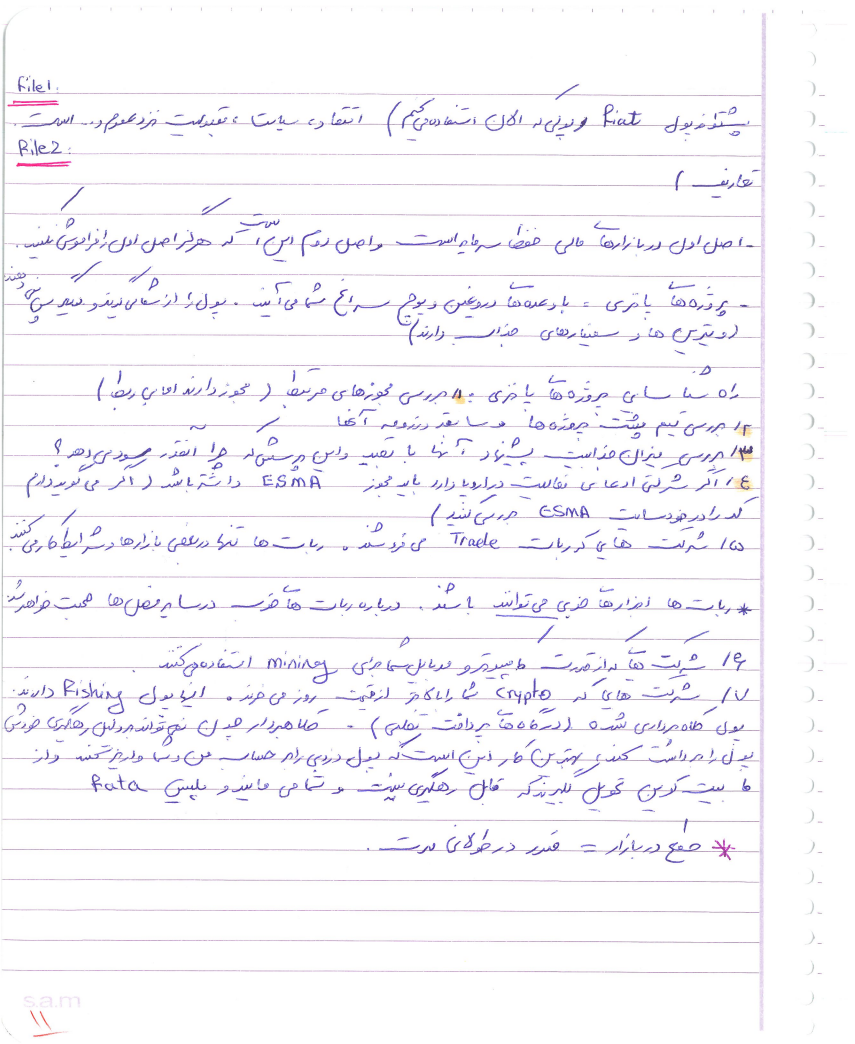 File1:
پشتوانه پول Fiat (پولی که الان استفاده می‌کنیم) اعتقاد، سیاست، مقبولیت نزد عموم و... است.
File2:
تعاریف)
- اصل اول در بازارهای مالی حفظ سرمایه است و اصل دوم این است که هرگز اصل اول را فراموش نکنید.
- پروژه‌های پانزی = با وعده‌های دروغین و پوچ سراغ شما می‌آیند. پول را از شما می‌گیرند و دیگر پس نمی‌دهند
(ویترین‌ها و سمینارهای جذاب دارند)
راه شناسایی پروژه‌های پانزی = ۱/ بررسی مجوزهای مرتبط (مجوز دارند اما بی‌ربط)
۲/ بررسی تیم پشت پروژه‌ها و سابقه و رزومه آنها
۳/ بررسی میزان جذابیت پیشنهاد آنها با تعجب و این پرسش که چرا آنقدر سود می‌دهد؟
۴/ اگر شرکتی ادعای فعالیت در اروپا دارد باید مجوز ESMA داشته باشد (اگر می‌گوید دارم
کد را در خود سایت ESMA بررسی کنید)
۵/ شرکت‌هایی که ربات Trade می‌فروشند. ربات‌ها تنها در بعضی بازارها و شرایط کار می‌کنند
* ربات‌ها ابزارهای خوبی می‌توانند باشند. درباره ربات‌های خوب در سایر فصل‌ها صحبت خواهد شد
۶/ شرکت‌هایی که از قدرت کامپیوتر و موبایل شما برای mining استفاده می‌کنند.
۷/ شرکت‌هایی که Crypto شما را بالاتر از قیمت روز می‌خرند. اینها پول Fishing دارند.
پول کلاهبرداری شده (درگاه‌های پرداخت تقلبی). کلاهبردار چون نمی‌تواند بدلیل رهگیری خودش
پول را برداشت کند، بهترین کار این است که پول دزدی را به حساب من و شما واریز کنند و از
ما بیت کوین تحویل بگیرند که قابل رهگیری نیست و شما می‌مانید و پلیس fata
* طمع در بازار = ضرر در طولانی مدت.
s.a.m
۱۱